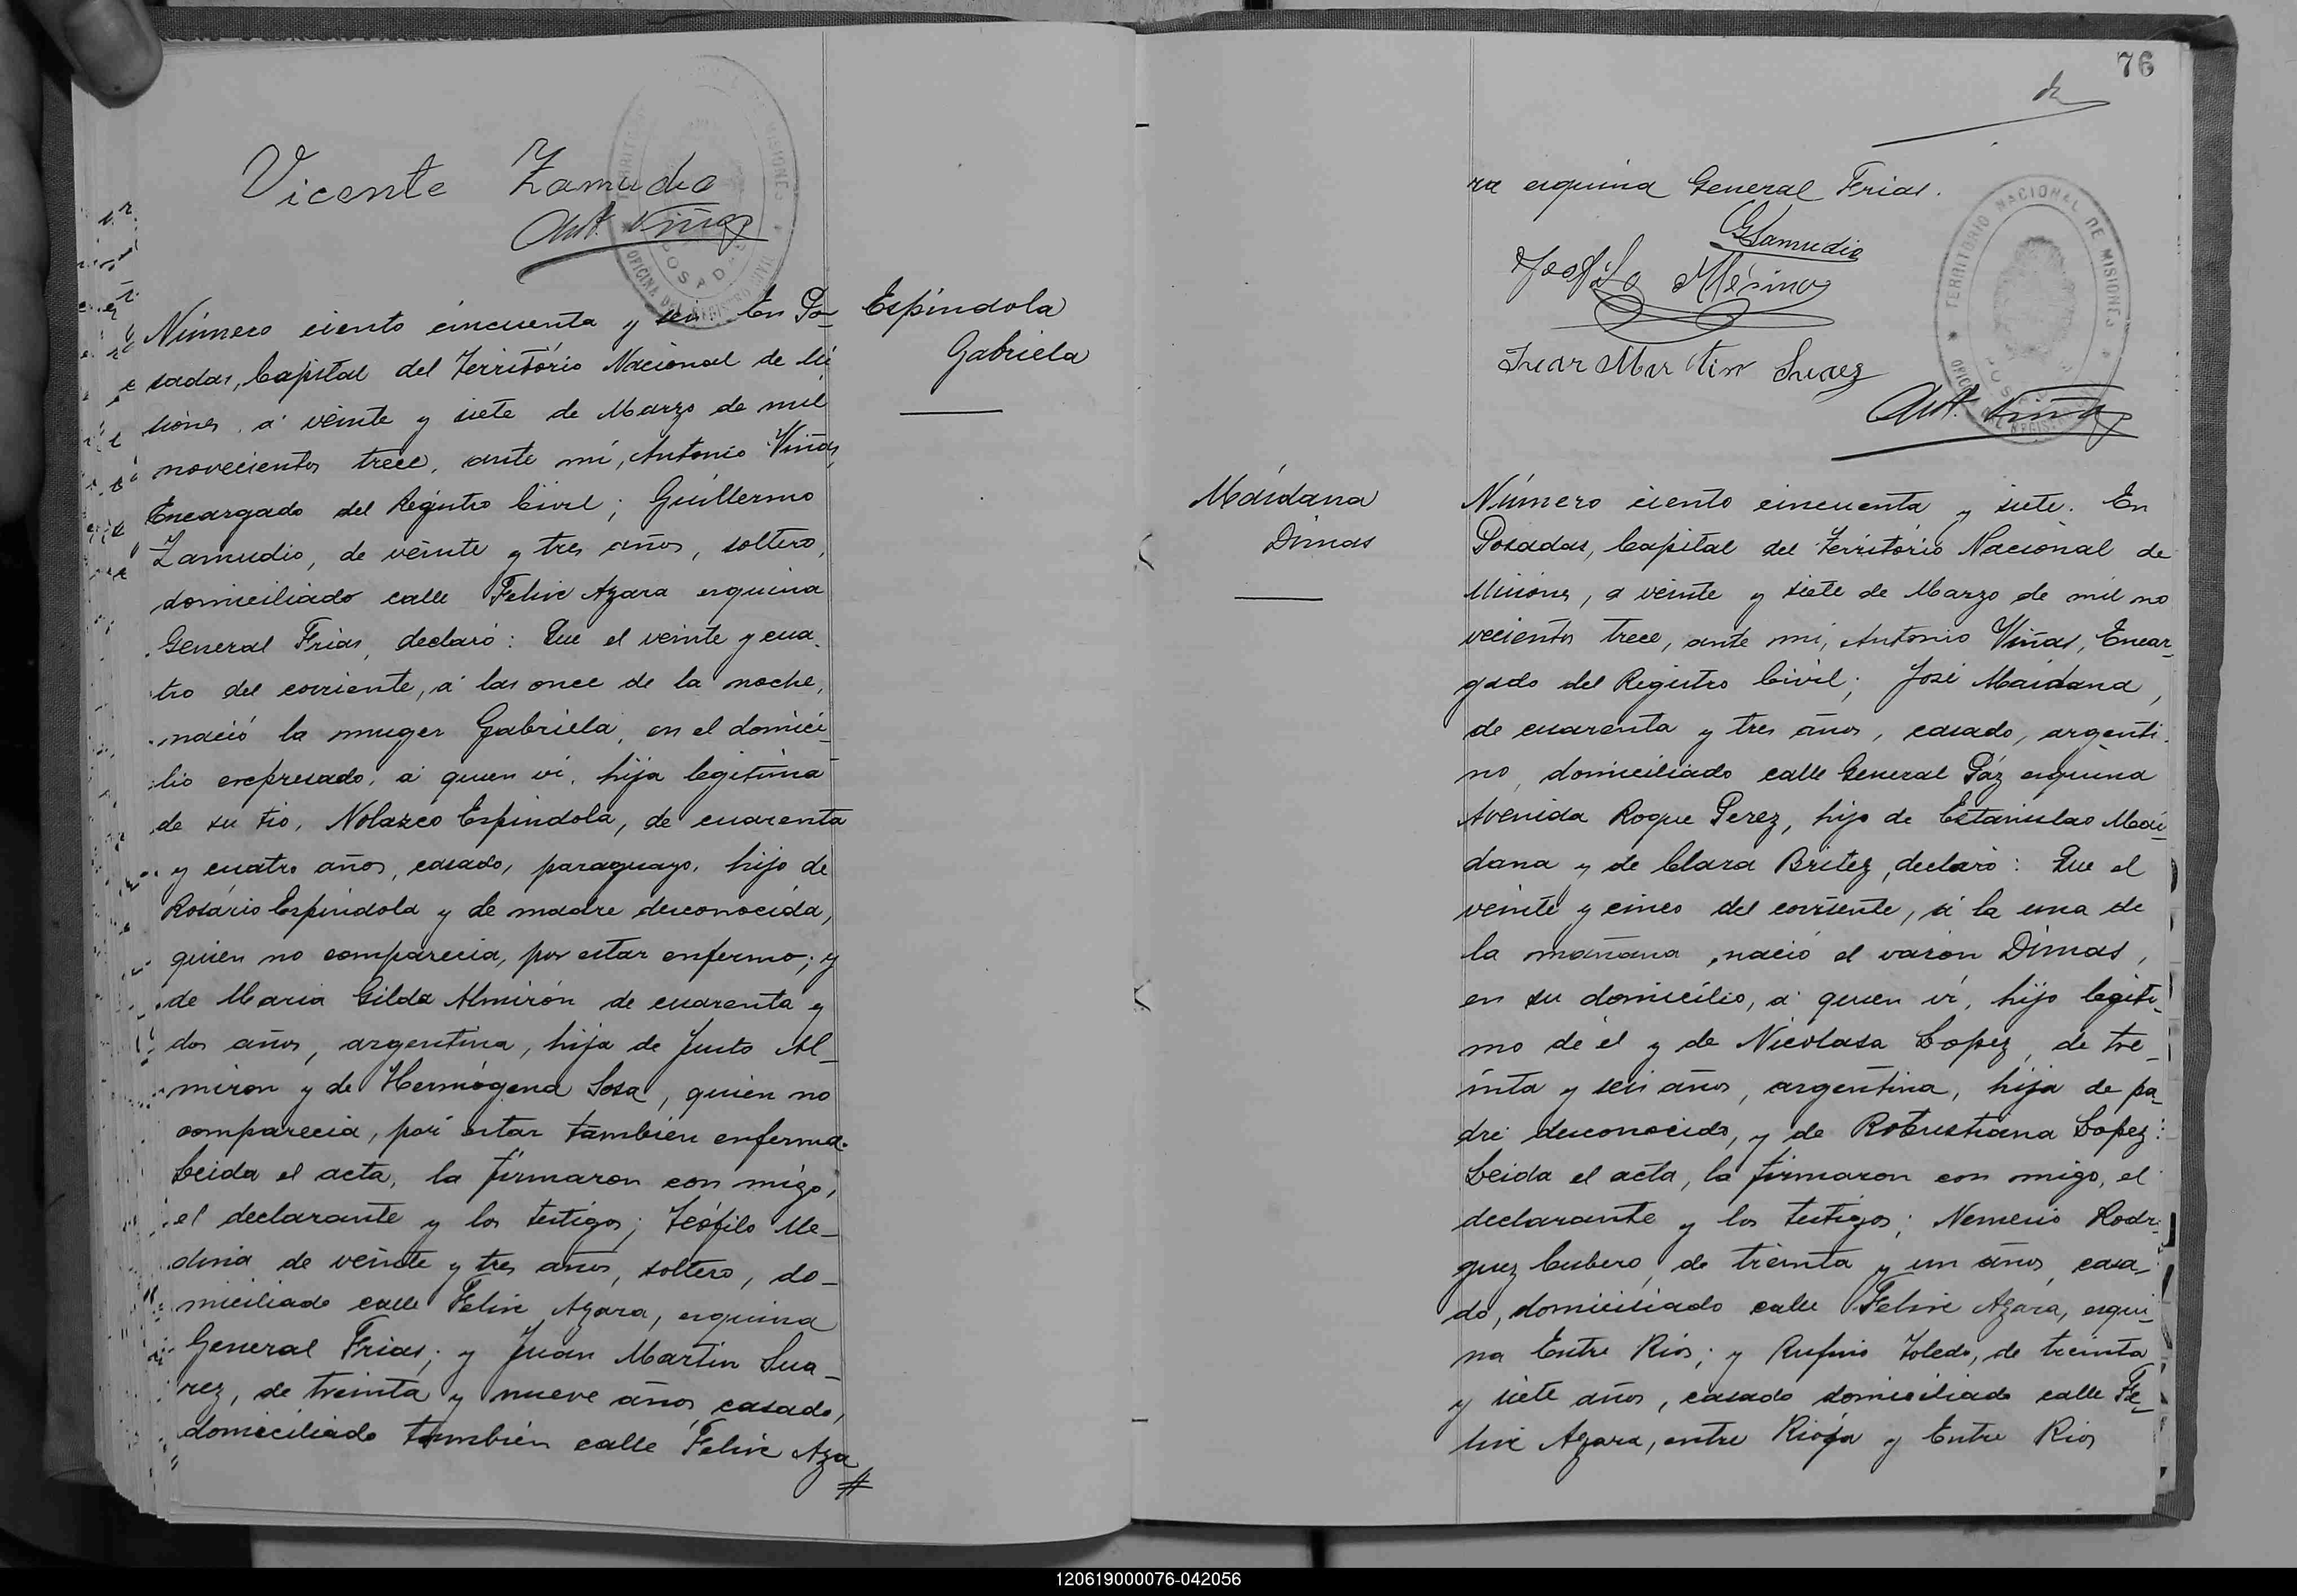 Vicente Zamudio
Ant. Viñas
Número ciento cincuenta y seis En Po-
sadas, Capital del Território Nacional de Mi
siones, á veinte y siete de Marzo de mil
novecientos trece, ante mí, Antonio Viñas,
Encargado del Registro Civil; Guillermo
Zamudio, de veinte y tres años, soltero,
domiciliado calle Felix Azara esquina
General Frias, declaró: Que el veinte y cua-
tro del corriente, á las once de la noche,
nació la muger Gabriela, en el domici-
lio expresado, á quien ví, hija legítima
de su tio, Nolazco Espindola, de cuarenta
y cuatro años, casado, paraguayo, hijo de
Rosário Espindola y de madre desconocida,
quien no comparecia, por estar enfermo; y
de Maria Gilda Almirón de cuarenta y
dos años, argentina, hija de Justo Al-
miron y de Hermógena Sosa, quien no
comparecia, por estar también enferma.
Leida el acta, la firmaron con migo,
el declarante y los testigos; Teófilo Me-
dina de veinte y tres años, soltero, do-
miciliado calle Felix Azara, esquina
General Frias; y Juan Martin Sua-
rez, de treinta y nueve años, casado,
domiciliado también calle Felix Aza
#
Espíndola
Gabriela
76
ra esquina General Frias.
GZamudio
Juan Martin Suarez
Ant. Viñas
TERRITORIO NACIONAL DE MISIONES
Maidana
Dimas
Número ciento cincuenta y siete. En
Posadas, Capital del Território Nacional de
Misiones, a veinte y siete de Marzo de mil no
vecientos trece, ante mí, Antonio Viñas, Encar-
gado del Registro Civil; José Maidana,
de cuarenta y tres años, casado, argenti-
no, domiciliado calle General Páz esquina
Avenida Roque Perez, hijo de Estanislao Mai-
dana y de Clara Britez, declaró: Que el
veinte y cinco del corriente, á la una de
la mañana, nació el varón Dimas,
en su domicilio, á quien ví, hijo legíti-
mo de él y de Nicolasa Lopez, de tre-
inta y seis años, argentina, hija de pa-
dre desconocido, y de Robustiana Lopez:
Leida el acta, la firmaron con migo, el
declarante y los testigos; Nemesio Rodr-
guez Cubero, de treinta y un años, casa-
do, domiciliado calle Felix Azara, esqui-
na Entre Rios; y Rufino Toledo, de treinta
y siete años, casado domiciliado calle Fe-
lix Azara, entre Rioja y Entre Rios
120619000076-042056